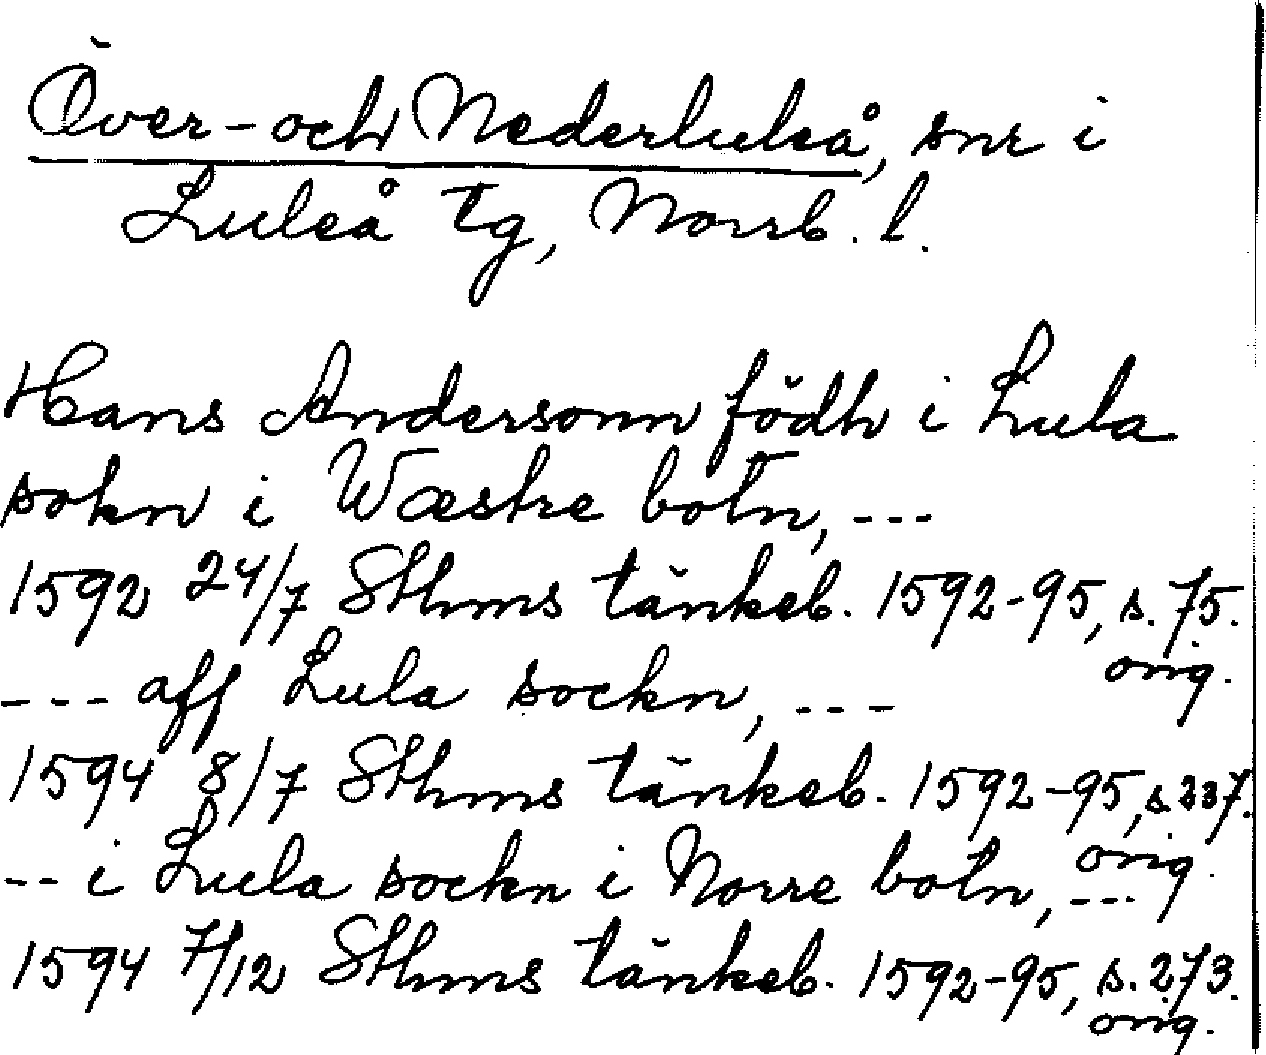 Över- och Nederluleå, snr i
Luleå tg, Norrb. l.
Hans Andersonn födh i Lula
sokn i Wæstre botn, ---
1592 24/7 Sthms tänkeb. 1592-95, s. 75.
orig.
--- aff Lula sockn, ---
1594 8/7 Sthms tänkeb. 1592-95, s. 237.
orig.
-- i Lula sockn i Norre botn, ---
1594 7/12 Sthms tänkeb. 1592-95, s. 273.
orig.